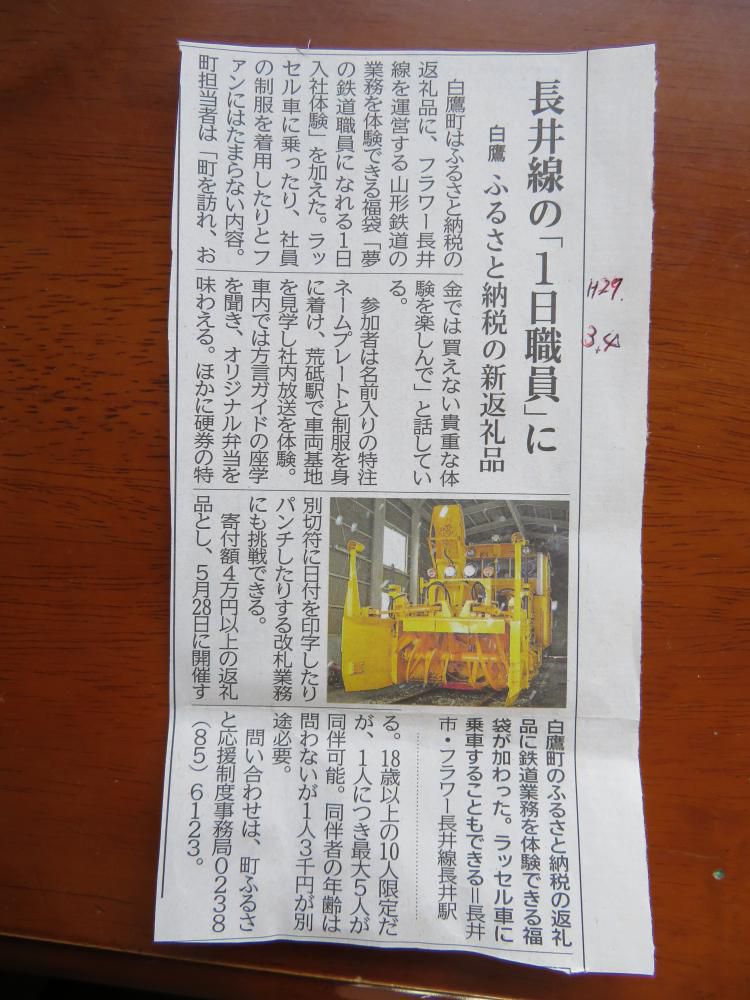 長井線の「1日職員」に
白鷹 ふるさと納税の新返礼品
H29.
3.4
白鷹町はふるさと納税の
返礼品に、フラワー長井
線を運営する山形鉄道の
業務を体験できる福袋「夢
の鉄道職員になれる1日
入社体験」を加えた。ラッ
セル車に乗ったり、社員
の制服を着用したりとフ
ァンにはたまらない内容。
町担当者は「町を訪れ、お
金では買えない貴重な体
験を楽しんで」と話してい
る。
参加者は名前入りの特注
ネームプレートと制服を身
に着け、荒砥駅で車両基地
を見学し社内放送を体験。
車内では方言ガイドの座学
を聞き、オリジナル弁当を
味わえる。ほかに硬券の特
別切符に日付を印字したり
パンチしたりする改札業務
にも挑戦できる。
寄付額4万円以上の返礼
品とし、5月28日に開催す
る。18歳以上の10人限定だ
が、1人につき最大5人が
同伴可能。同伴者の年齢は
問わないが1人3千円が別
途必要。
問い合わせは、町ふるさ
と応援制度事務局0238
(85)6123。
白鷹町のふるさと納税の返礼
品に鉄道業務を体験できる福
袋が加わった。ラッセル車に
乗車することもできる＝長井
市・フラワー長井線長井駅